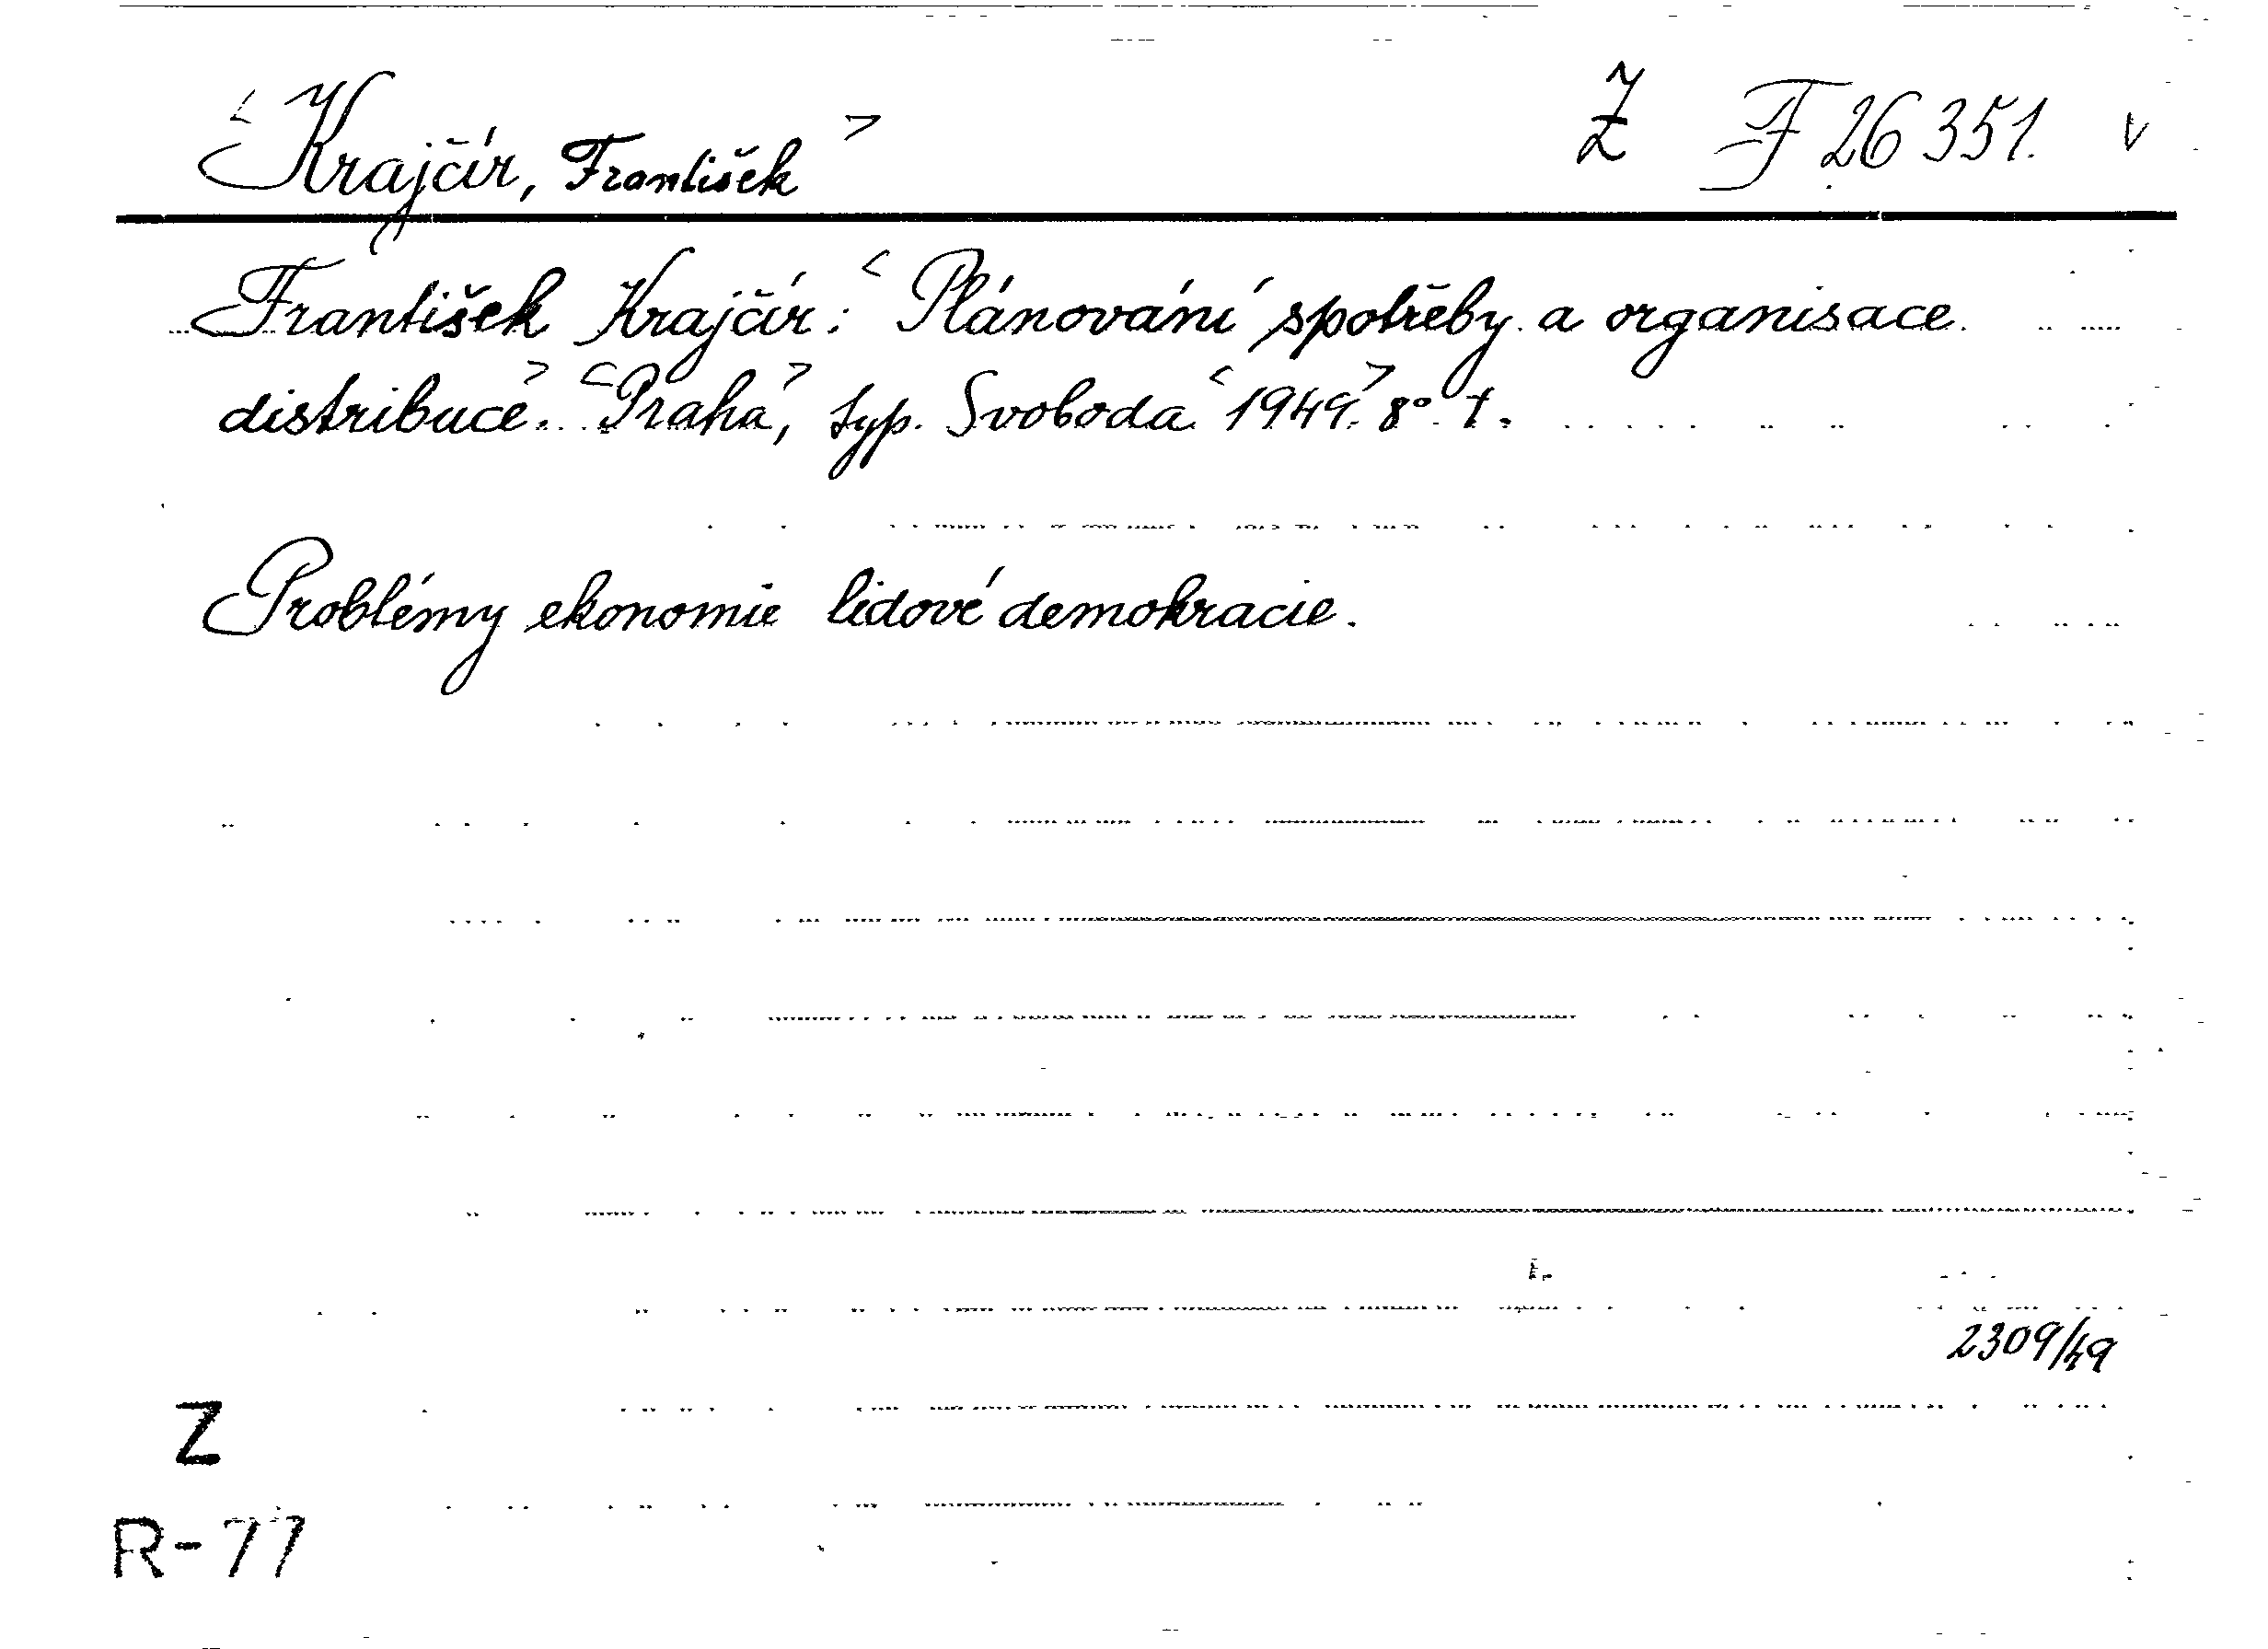 <Krajčír, František> Ž F 26 351. v
František Krajčír: <Plánování spotřeby a organisace
distribuce.> <Praha,> typ. Svoboda <1949.> 8° t.
Problémy ekonomie lidové demokracie.
2309/49
Z
R-77